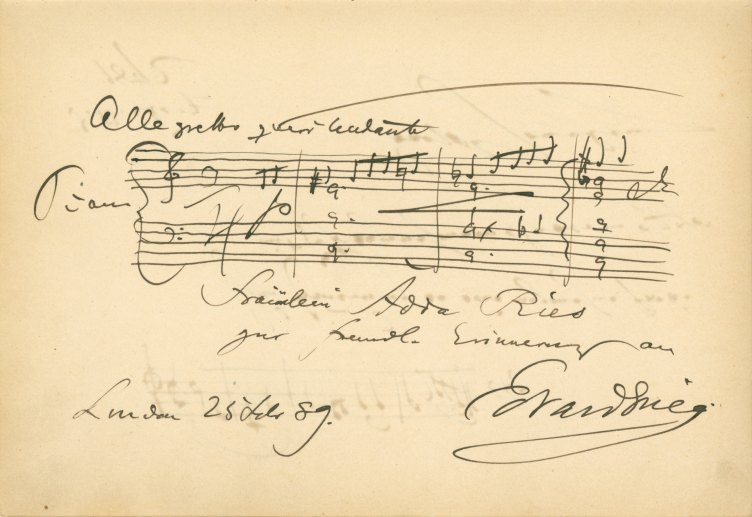 Allegretto quasi Andante
Piano
p
Fräulein Adda Ries
zur freundl. Erinnerung an
London 25 Feb 89.
Edvard Grieg.